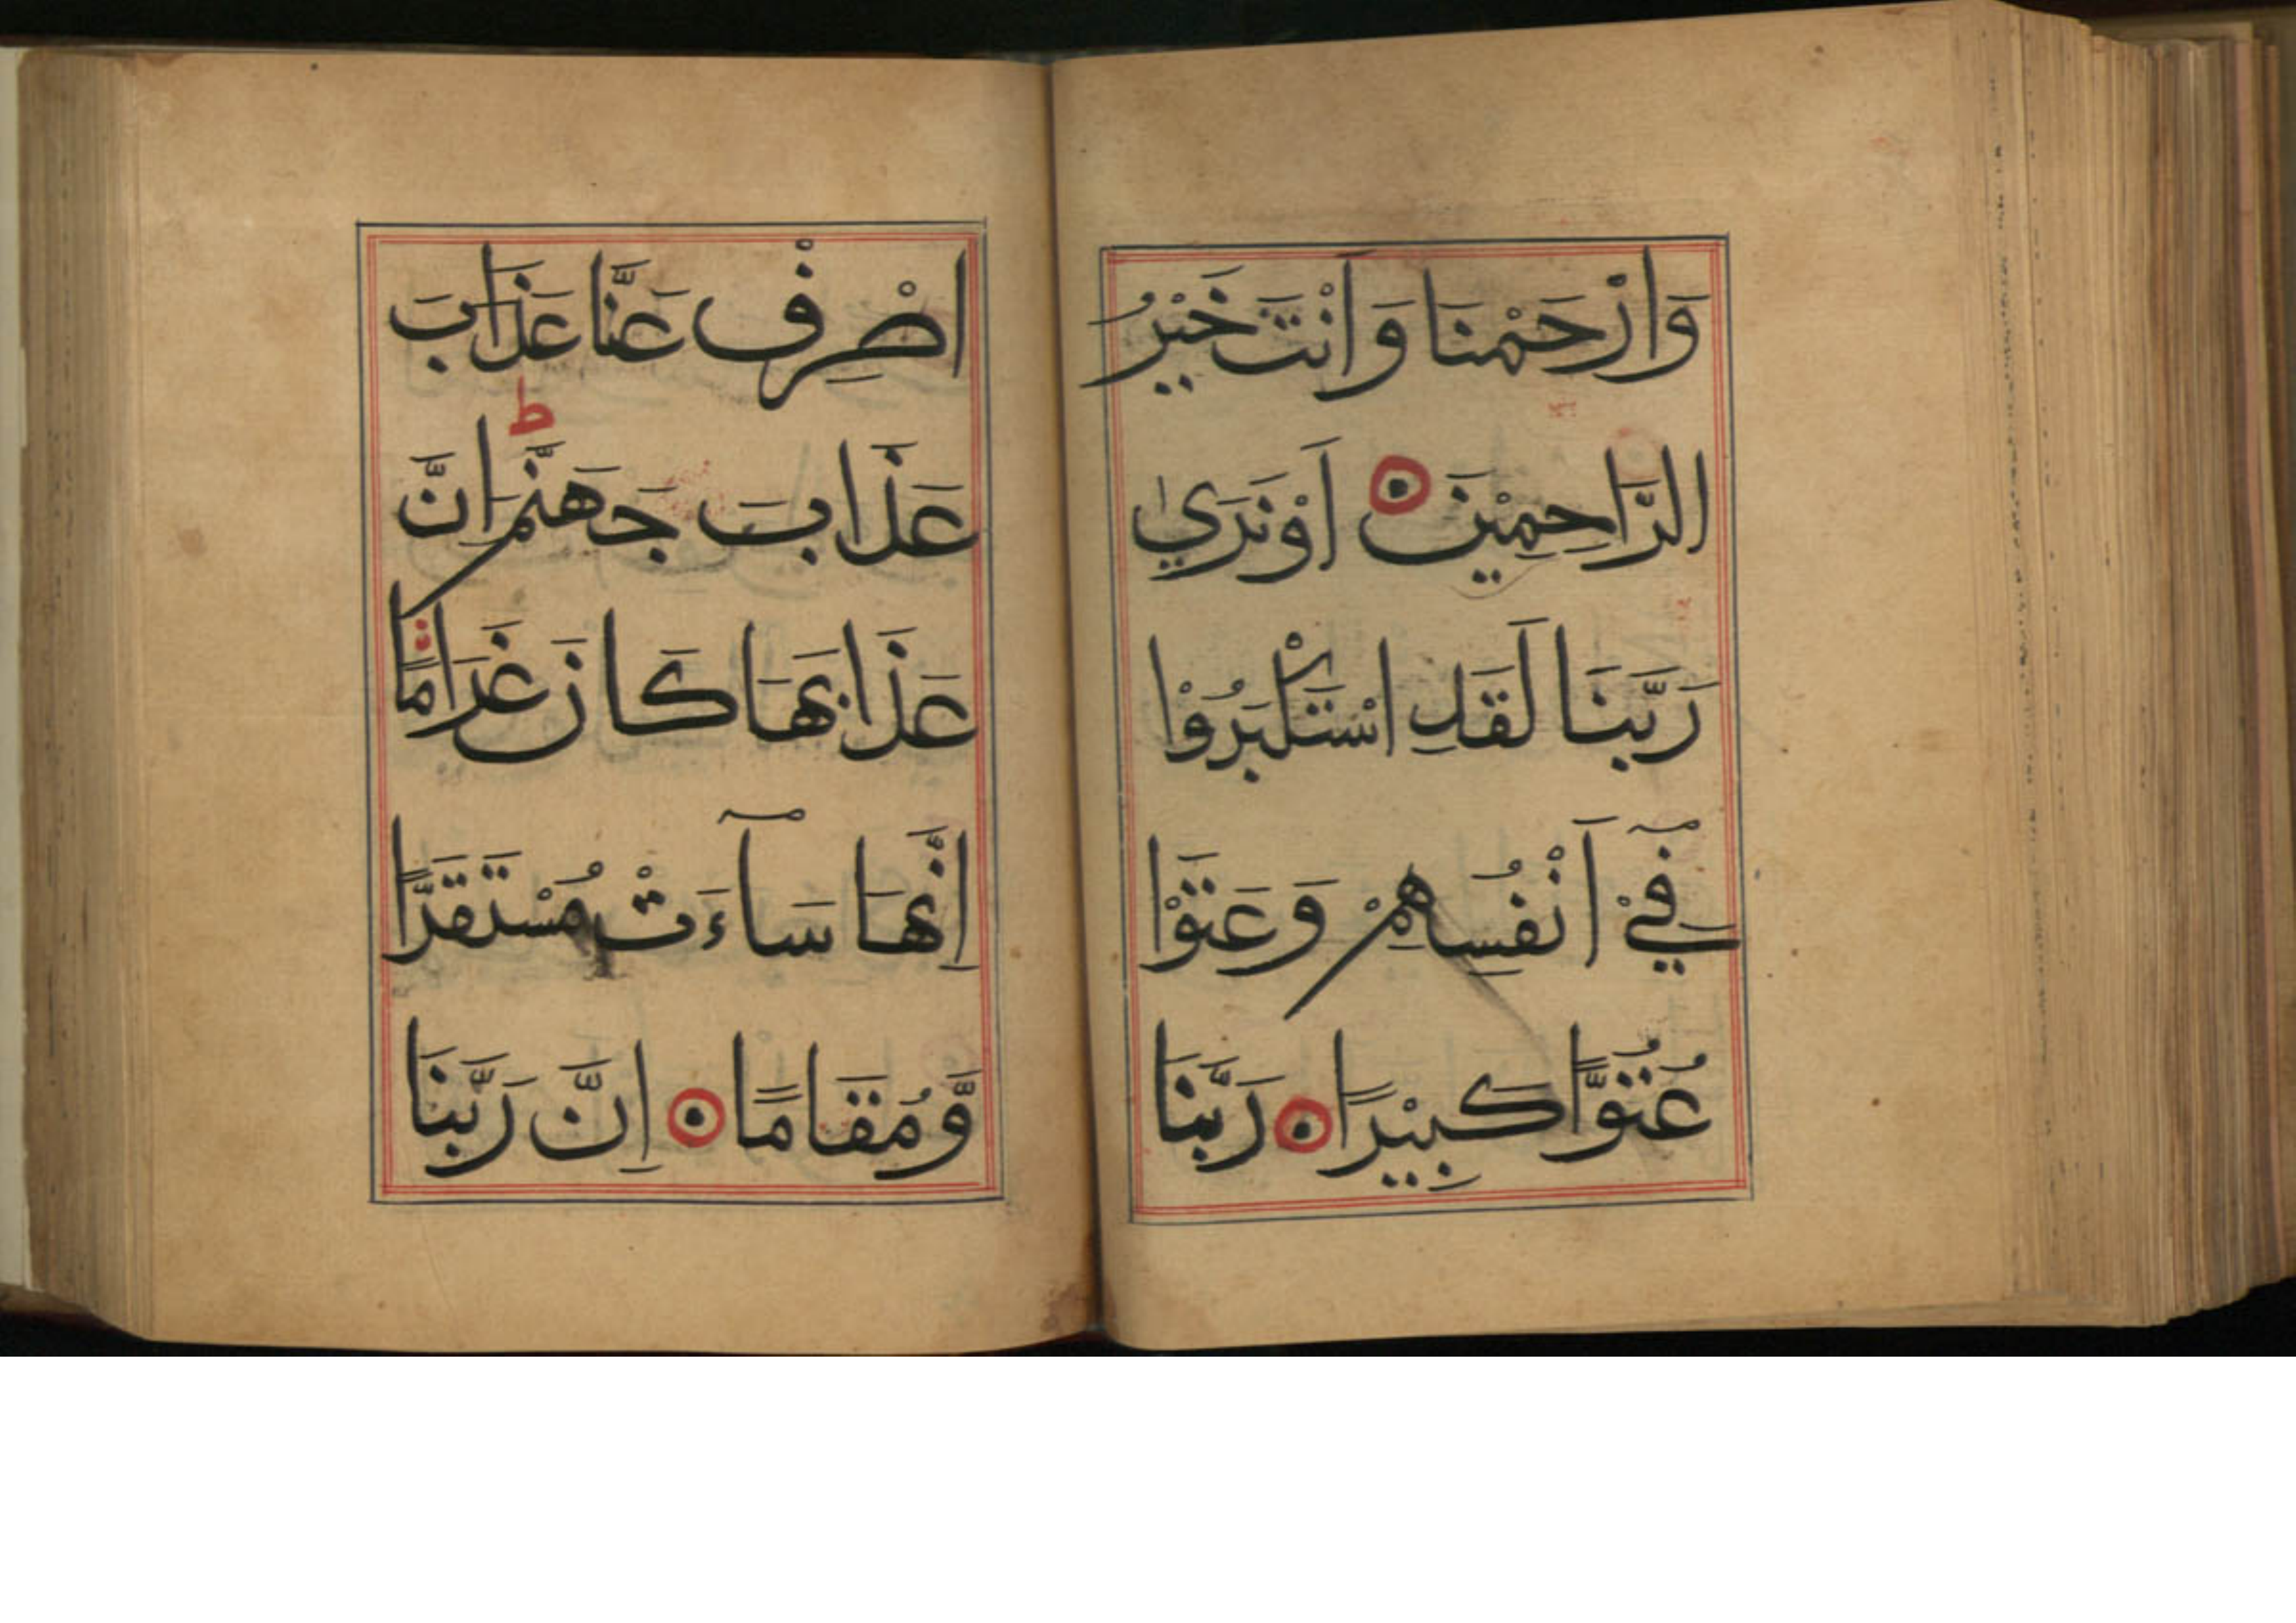 وَارْحَمْنَا وَاَنْتَ خَيْرُ
الرَّاحِمِيْنَ اَوْ نَرَيٰ
رَبَّنَا لَقَدِ اسْتَكْبَرُوْا
فِيْٓ اَنْفُسِهِمْ وَعَتَوْا
عُتُوًّا كَبِيْرًا رَبَّنَا
اصْرِفْ عَنَّا عَذَابَ
عَذَابَ جَهَنَّمَ ط اِنَّ
عَذَابَهَا كَانَ غَرَامًا
اِنَّهَا سَآءَتْ مُسْتَقَرًّا
وَّمُقَامًا اِنَّ رَبَّنَا